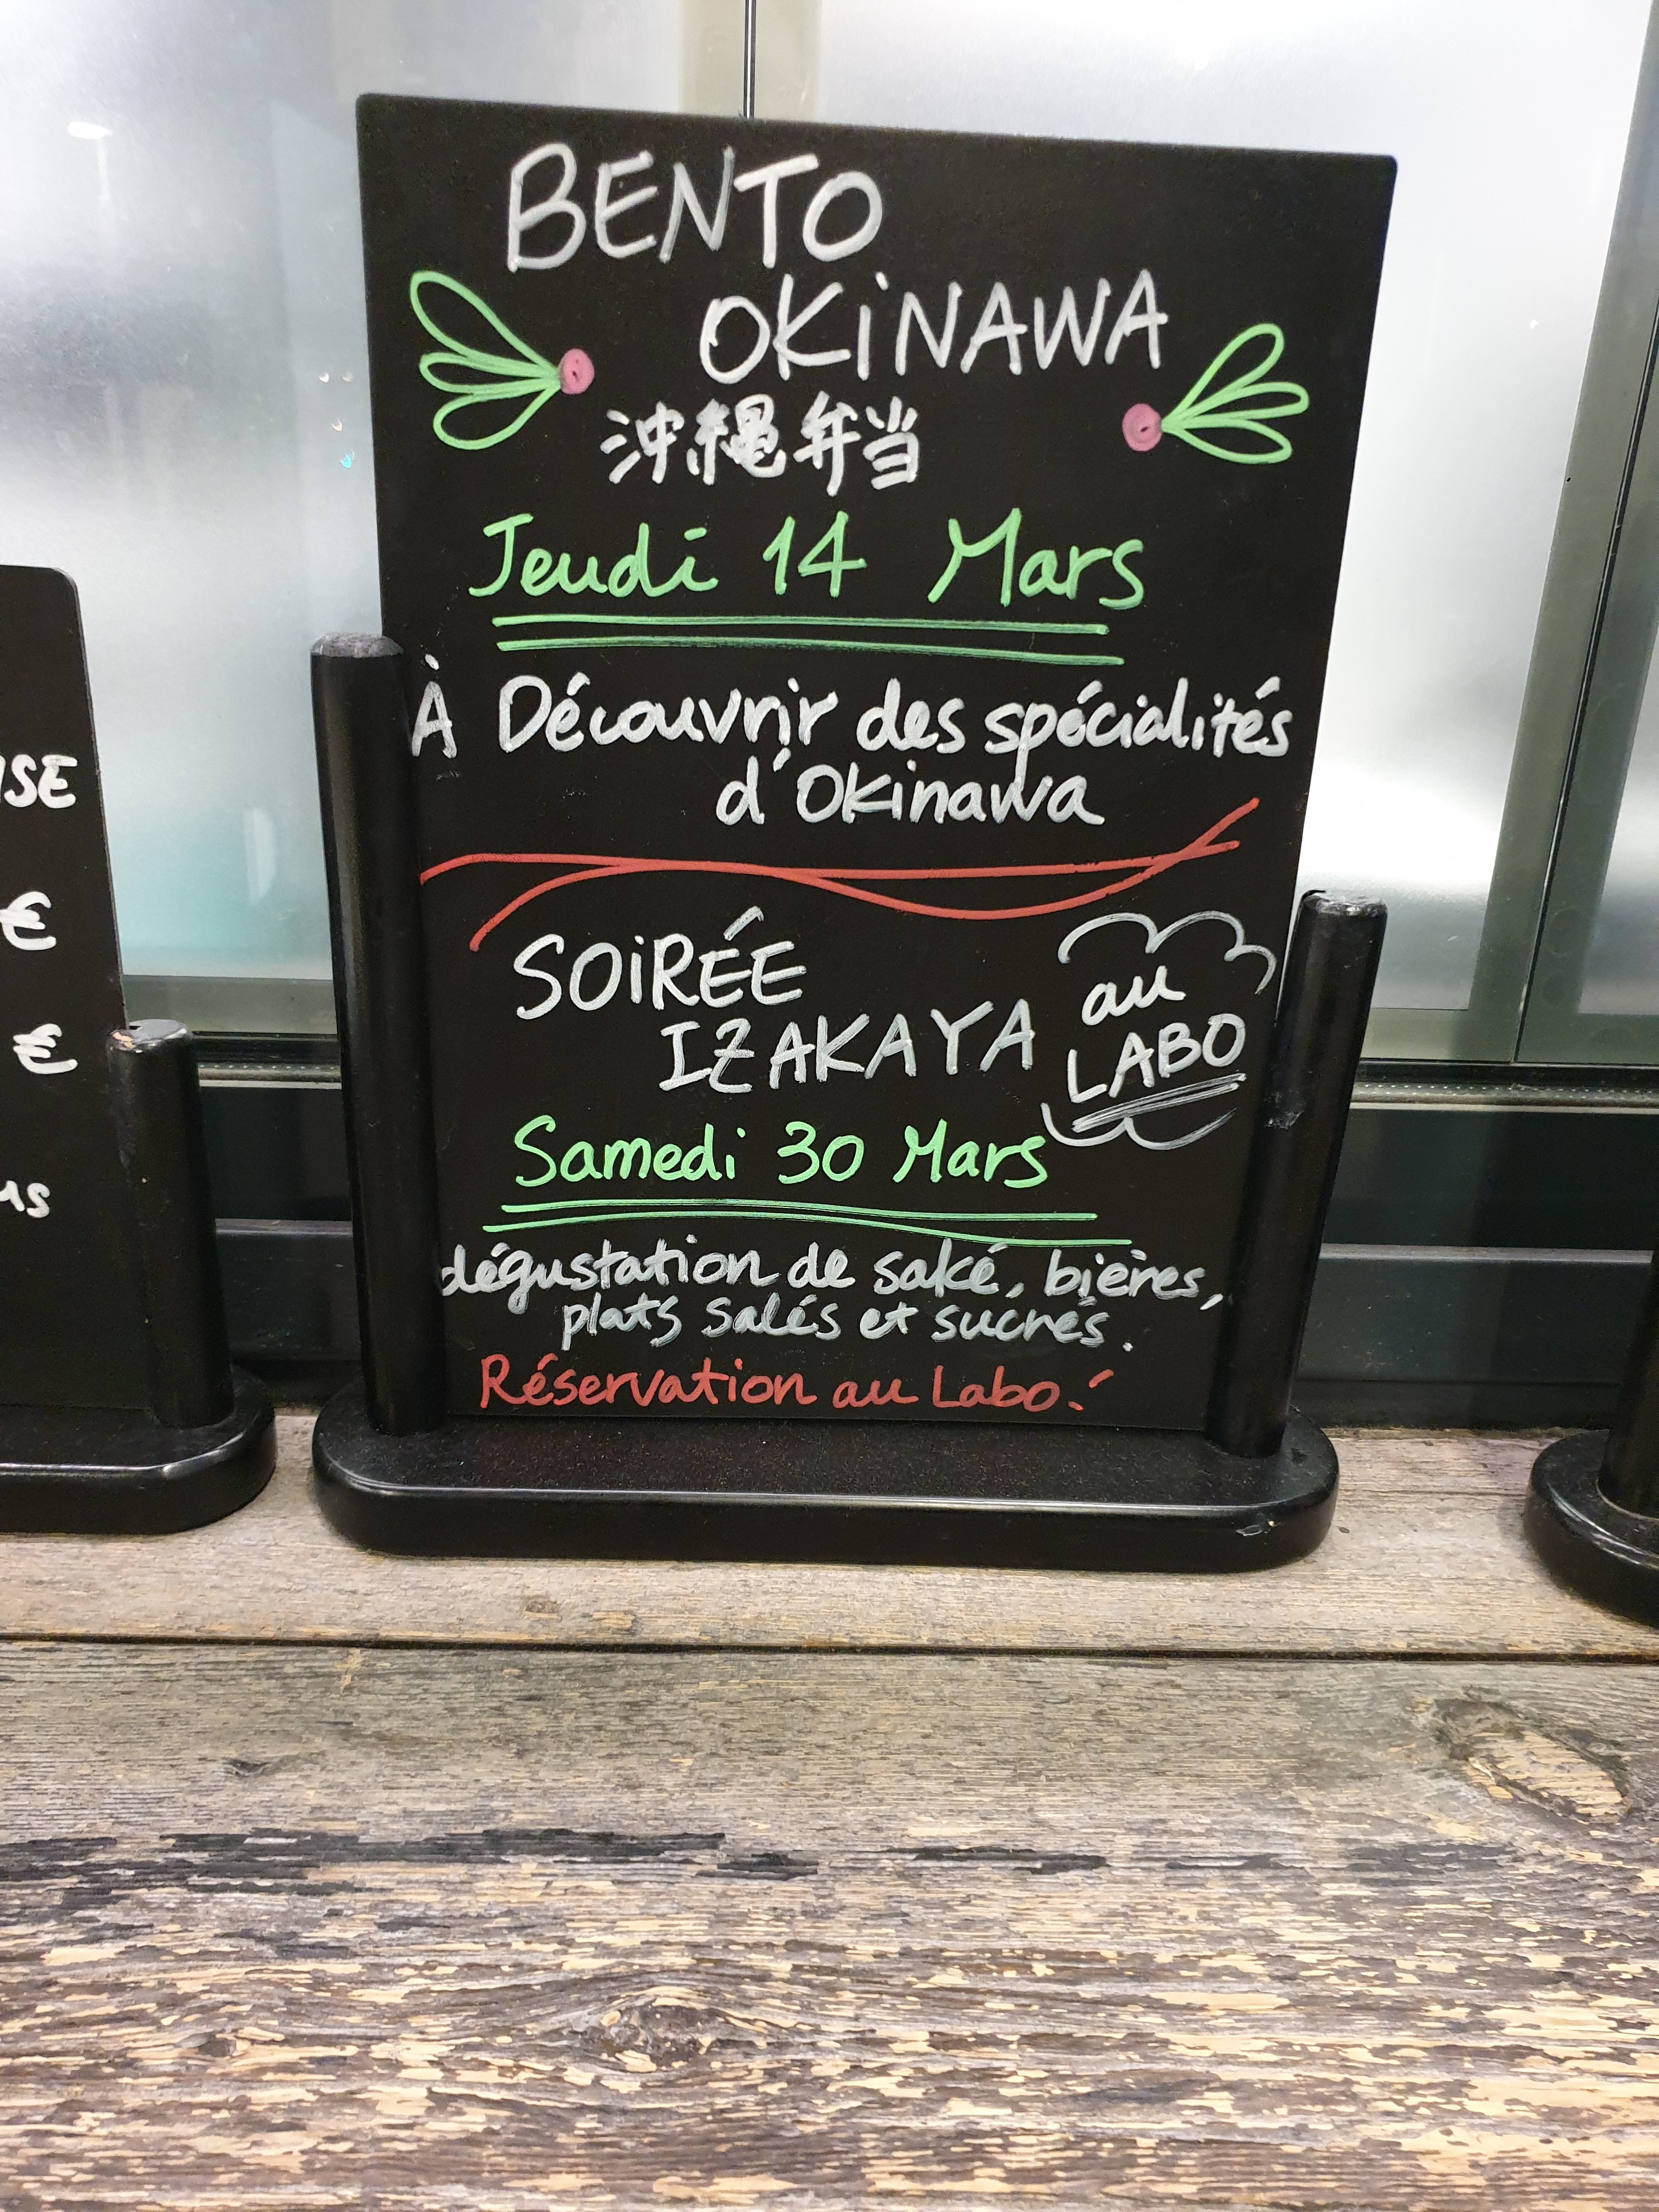 BENTO
OKiNAWA
沖縄弁当
Jeudi 14 Mars
À Découvrir des spécialités
d'Okinawa
SOiRÉE
IZAKAYA
au
LABO
Samedi 30 Mars
dégustation de saké, bières,
plats salés et sucrés.
Réservation au Labo!
ISE
€
€
us